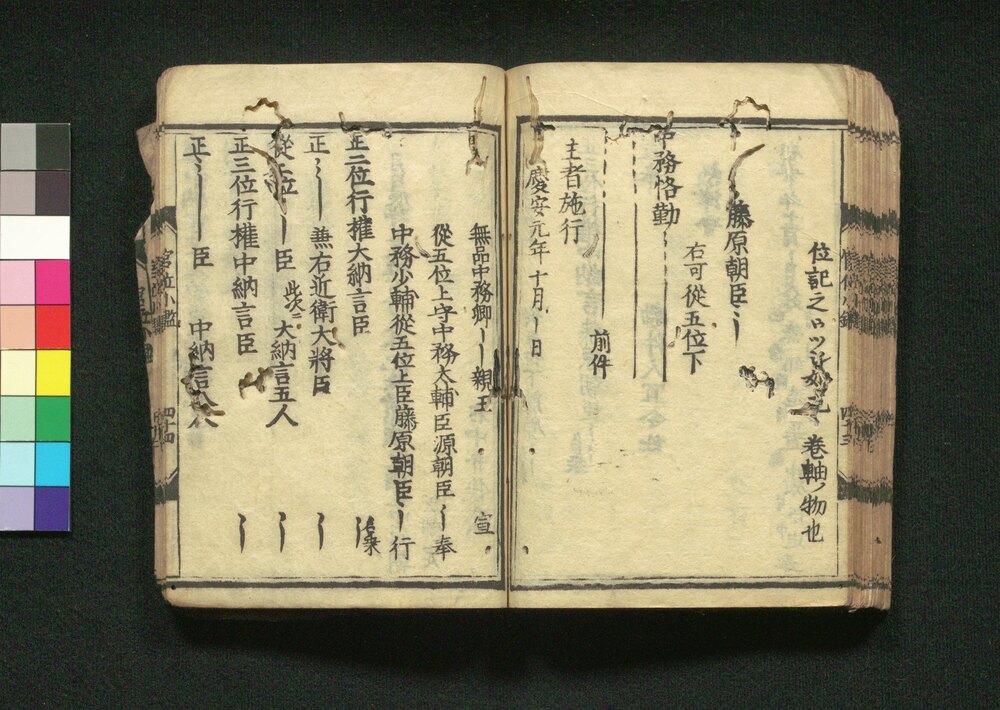 位記之 卷軸ノ物也
藤原朝臣〻
右可從五位下
中務恪勤
前件
主者施行
慶安元年十月〻日
無品中務卿〻親王 宣
從五位上守中務大輔臣源朝臣〻奉
中務少輔從五位上臣藤原朝臣〻行
正二位行權大納言臣
正〻兼右近衛大將臣
從二位〻臣 此次ニ 大納言五人
正三位行權中納言臣
正〻臣 中納言 人
官位小鑑
四十三
四十四